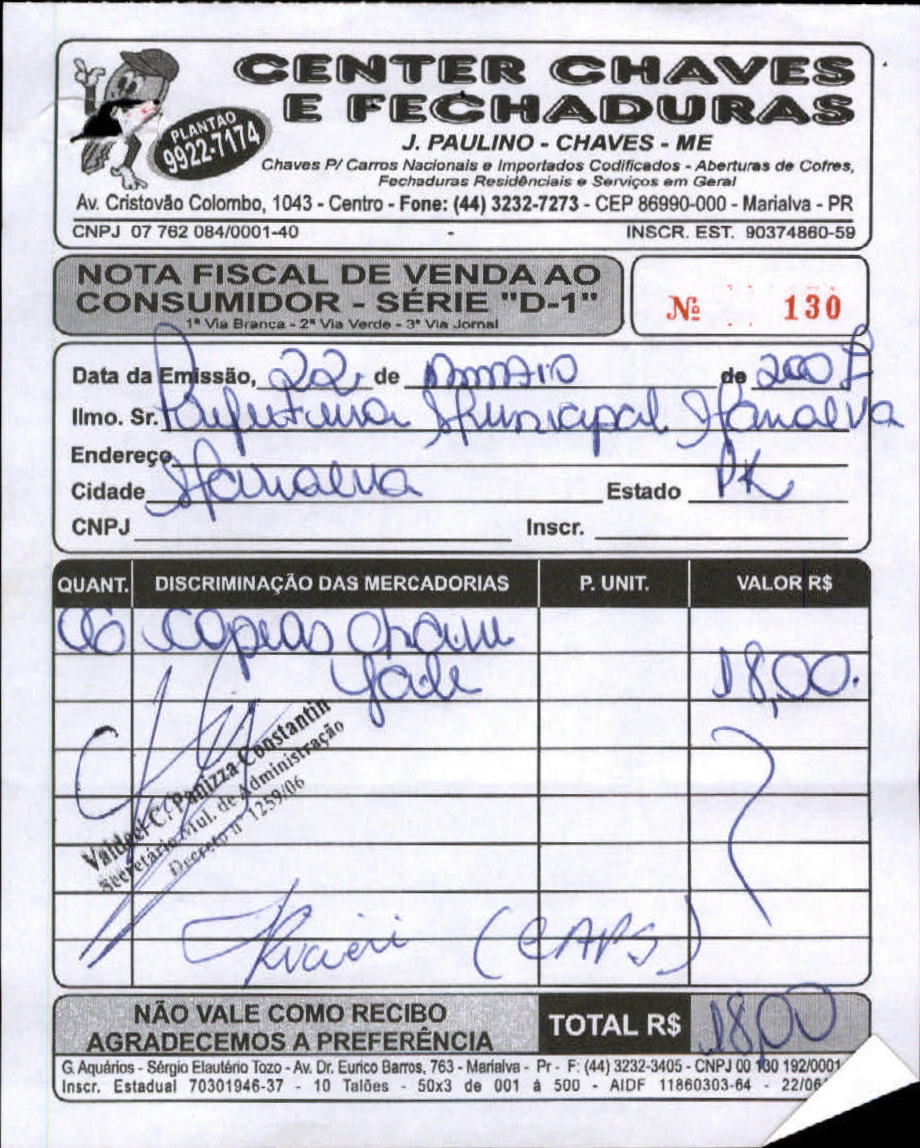 CENTER CHAVES
E FECHADURAS
PLANTÃO
9922-7174
J. PAULINO - CHAVES - ME
Chaves P/ Carros Nacionais e Importados Codificados - Aberturas de Cofres,
Fechaduras Residênciais e Serviços em Geral
Av. Cristovão Colombo, 1043 - Centro - Fone: (44) 3232-7273 - CEP 86990-000 - Marialva - PR
CNPJ 07 762 084/0001-40 - INSCR. EST. 90374860-59
NOTA FISCAL DE VENDA AO
CONSUMIDOR - SÉRIE "D-1"
1ª Via Branca - 2ª Via Verde - 3ª Via Jornal
Nº 130
Data da Emissão, 22 de maio de 2007
Ilmo. Sr. Prefeitura Municipal Marialva
Endereço
Cidade Marialva Estado PR
CNPJ Inscr.
QUANT. DISCRIMINAÇÃO DAS MERCADORIAS P. UNIT. VALOR R$
06 Copias chave
Yale 18,00.
C. Panizza Constantin
Secretário Mul. de Administração
Decreto nº 1259/06
(CAPS)
NÃO VALE COMO RECIBO
AGRADECEMOS A PREFERÊNCIA
TOTAL R$ 18,00
G. Aquários - Sérgio Elautério Tozo - Av. Dr. Eurico Barros, 763 - Marialva - Pr - F: (44) 3232-3405 - CNPJ 00 130 192/0001
Inscr. Estadual 70301946-37 - 10 Talões - 50x3 de 001 à 500 - AIDF 11860303-64 - 22/06